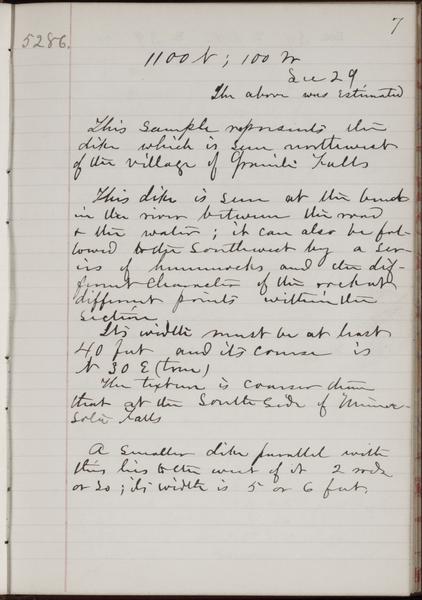 7
5286.
1100 N ; 100 W
Sec 29
The above was estimated
This sample represents the
dike which is seen northwest
of the village of Granite Falls
This dike is seen at the bend
in the river between the road
& the water ; it can also be fol-
lowed to the Southwest by a ser-
ies of hummocks and the dif-
ferent character of the rock at
different points within the
section
Its width must be at least
40 feet and its course is
N 30 E (true)
The texture is coarser than
that at the South Side of Minne-
sota Falls
A smaller dike parallel with
this lies to the west of it 2 rods
or so ; its width is 5 or 6 feet.